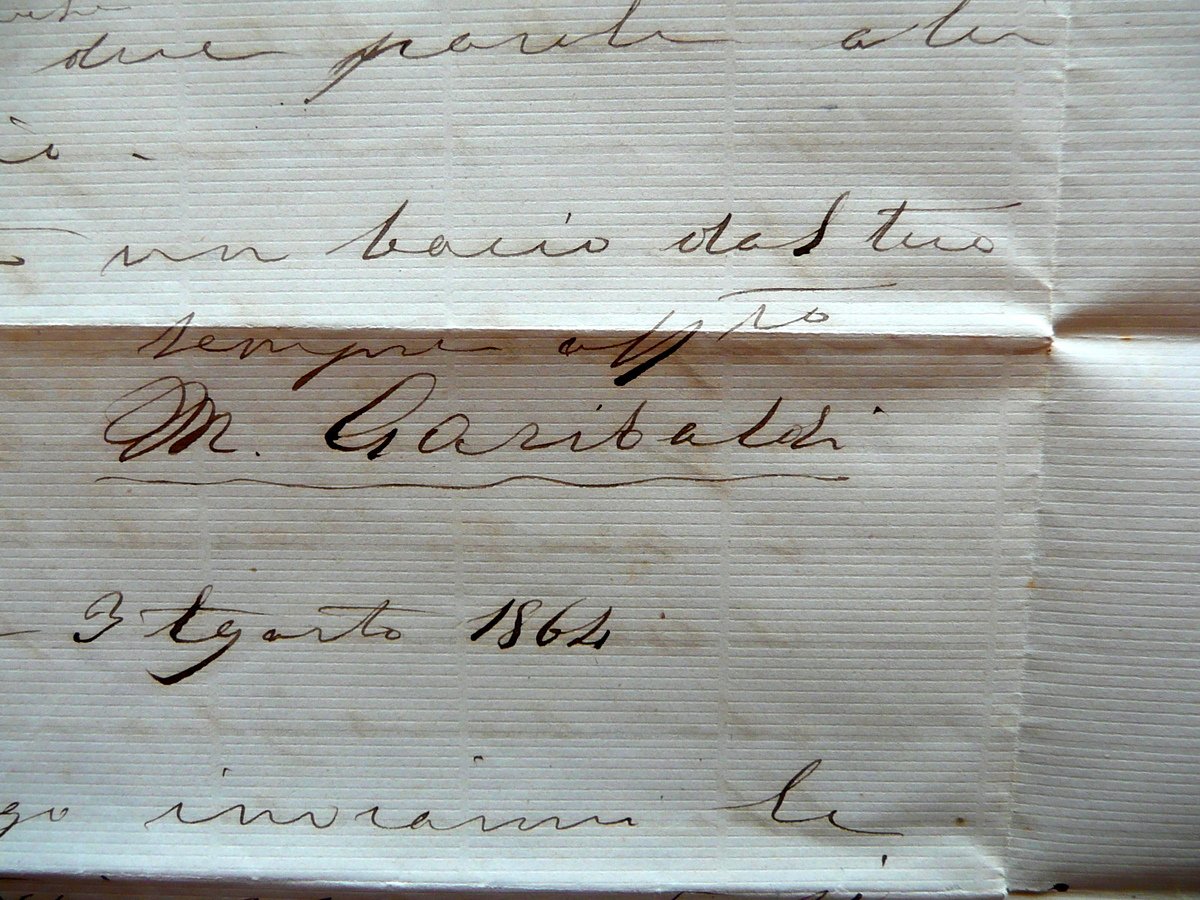 due parole a
un bacio dal tuo
sempre aff.to
M. Garibaldi
3 Agosto 1864
inviarmi le